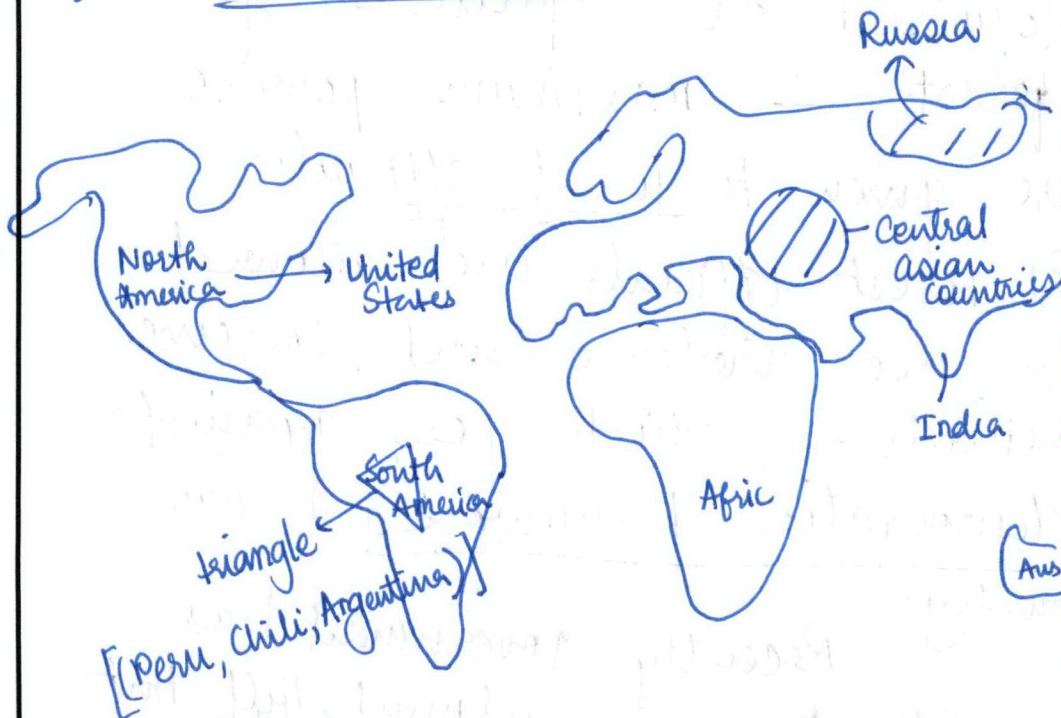 Russia
North
America
United
States
Central
asian
countries
India
South
America
Afric
triangle
[(Peru, Chili, Argentina)]
Aus